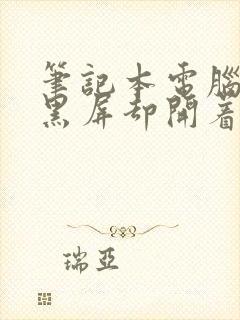 筆記本電腦
黑屏却開着
瑞亞